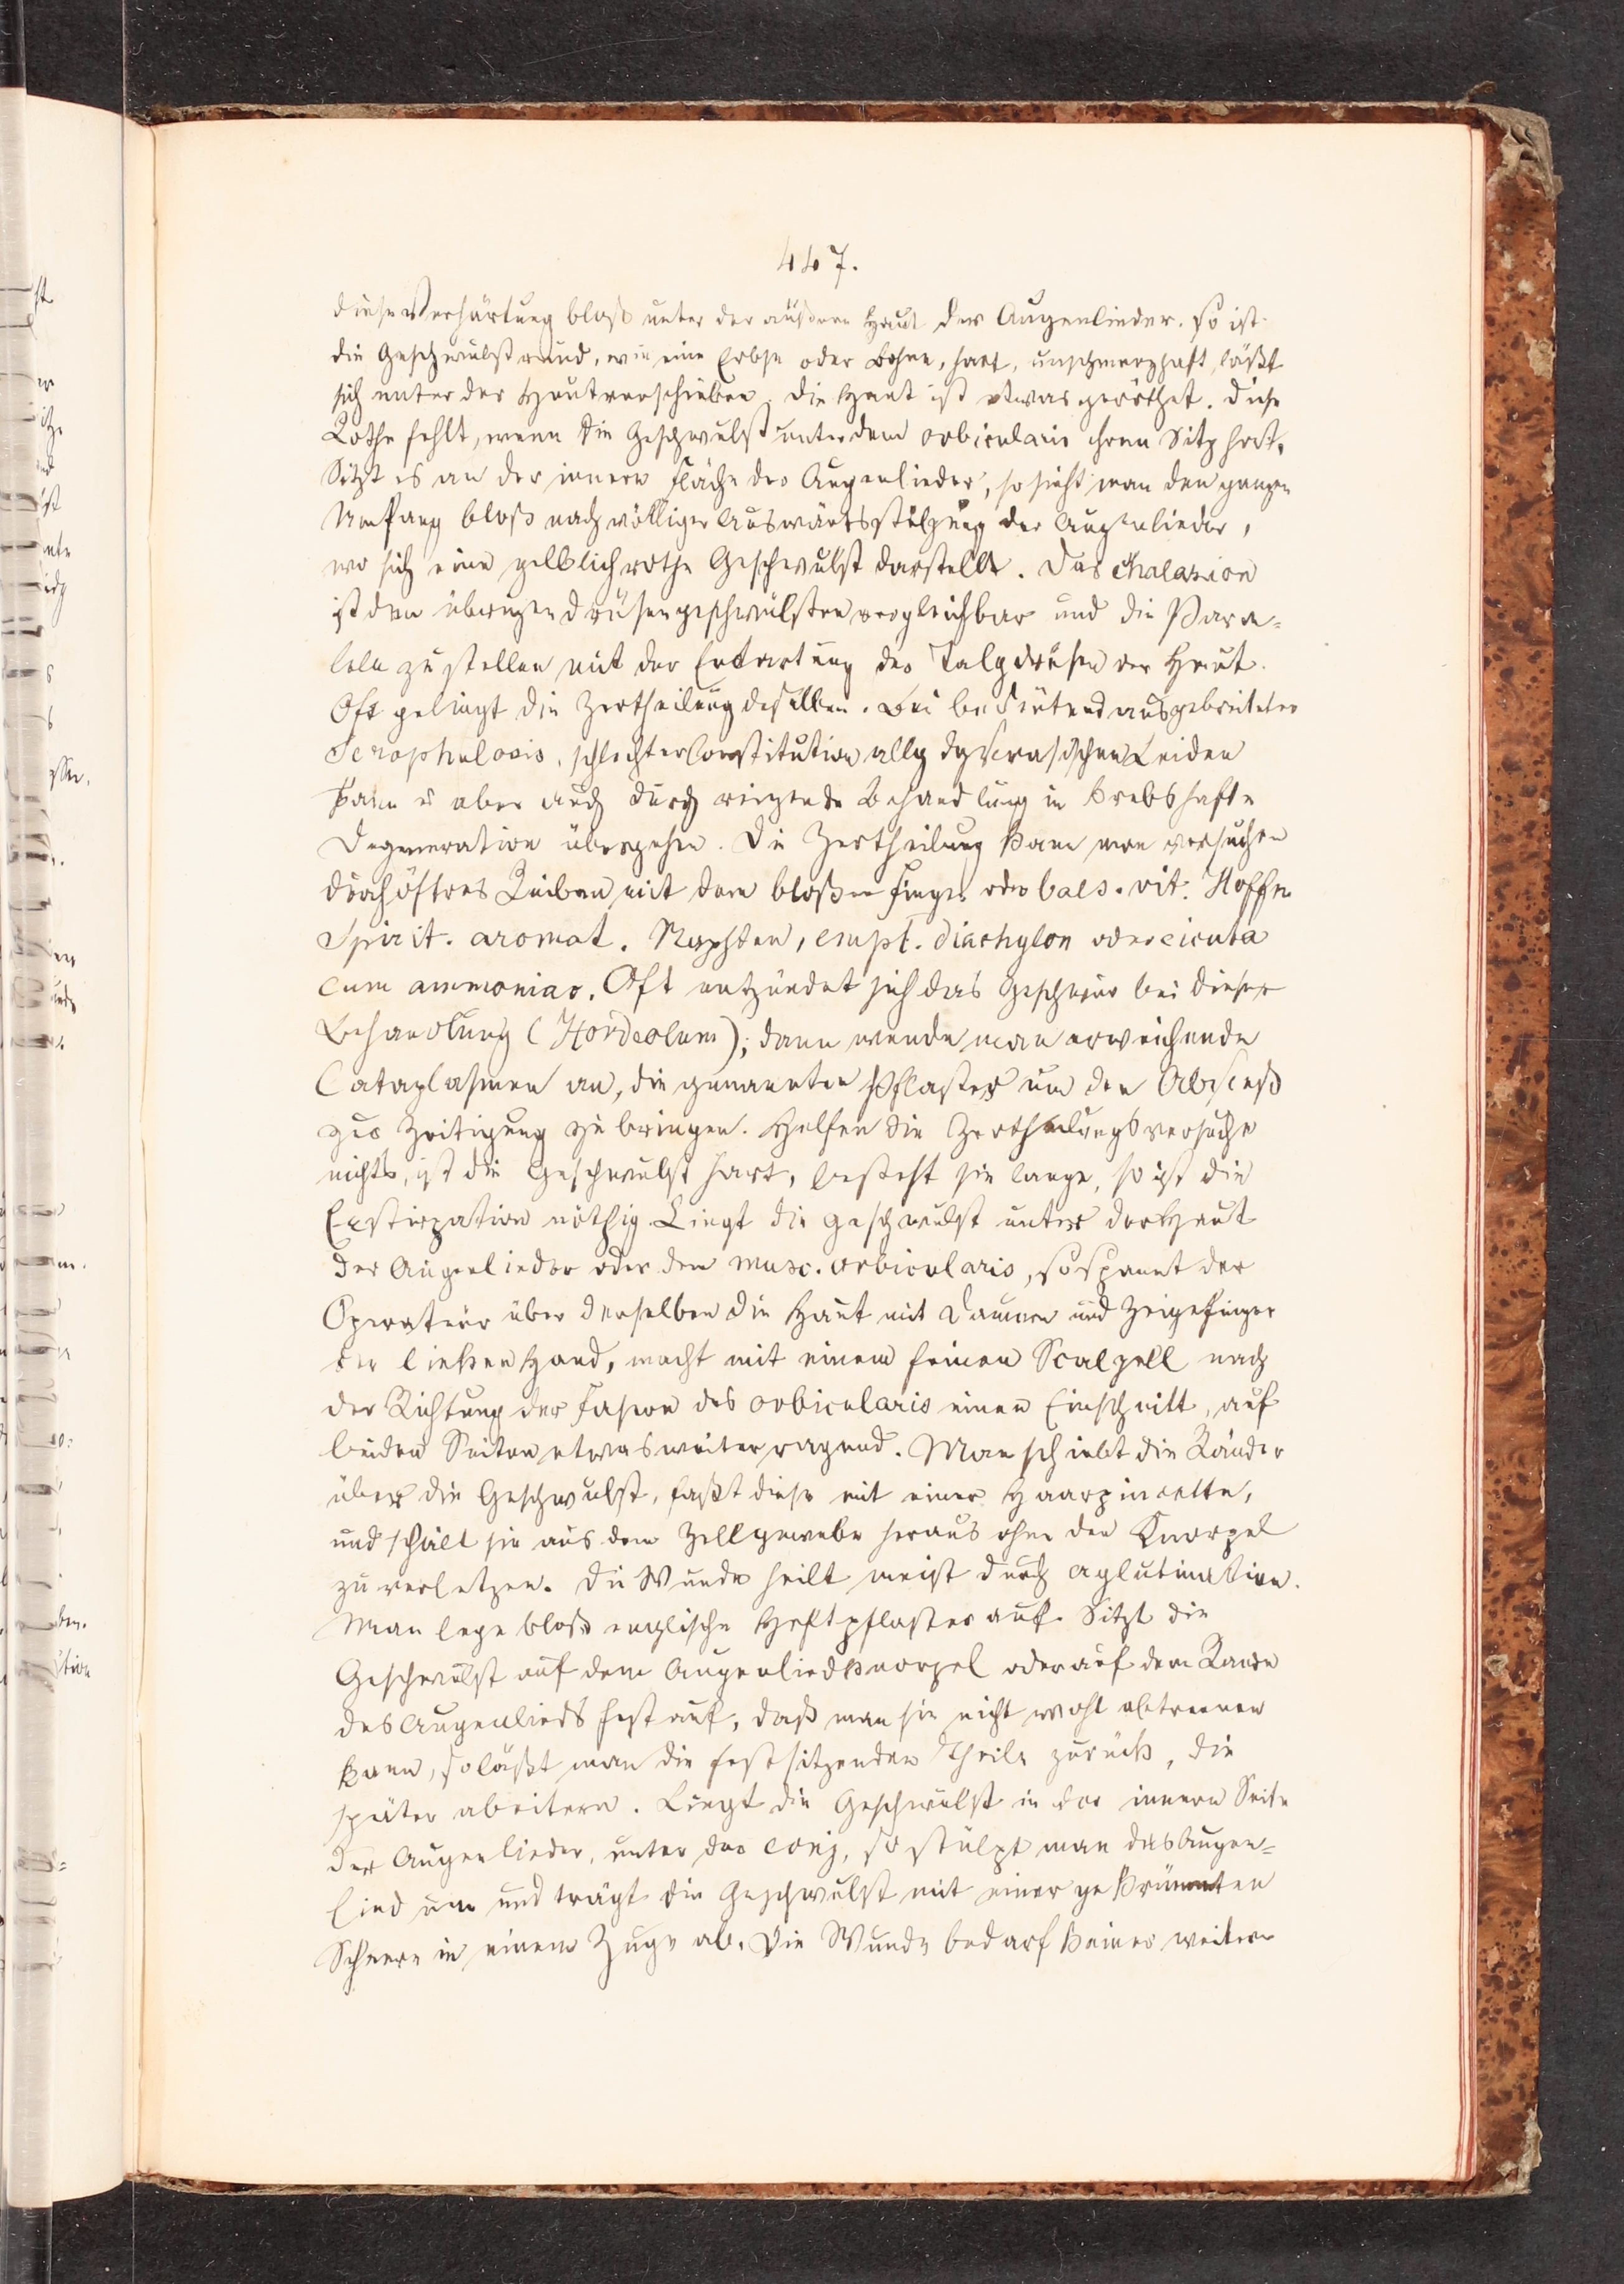 447.
diese Verhärtung bloß unter der äußern Haut der Augenlieder. so ist
die Geschwulst rund, wie eine Erbse oder Bohne, hart, unschmerzhaft, läßt
sich unter der Haut verschieben. die Haut ist etwas geröthet. diese
Röthe fehlt, wenn die Geschwulst unter dem orbicularis ihren Sitz hat.
Sitzt es an der innern Fläche des Augenlieder, so sieht man den ganzen
Umfang bloß nach völliger Auswärtsstülpung der Augenlieder,
wo sich eine gelblichrothe Geschwulst darstellt. Das chalazion
ist den übrigen drüsengeschwülsten vergleichbar und die Para=
lele zu stellen mit der Entartung der Talgdrüsen der Haut.
Oft gelingt die Zertheilung deselben. Bei bedeutend ausgebreiteter
Scrophulosis, schlechter Constitution allg dyscrasischen Leiden
kann es aber auch durch reizende Behandlung in krebshafte
Degeneration übergehen. Die Zertheilung kann man versuchen
durch öfteres Reiben mit dem bloßen Finger oder bals. vit. Hoffm
Spirit. aromat. Naphten, empl. diachylon oder cicuta
cum ammoniac. Oft entzündet sich das Geschwür bei dieser
Behandlung (Hordeolum); dann wende man erweichende
Cataplasmen an, die genannten Pflaster um den Absceß
zur Zeitigung zu bringen. Helfen die Zertheilungsversuche
nichts, ist die Geschwulst hart, besteht sie lange, so ist die
Exstirpation nöthig. Liegt die Geschwulst unter der Haut
der Augenlieder oder dem musc. orbicularis, so spannt der
Operateur über derselben die Haut mit Daumen und Zeigefinger
der linken Hand, macht mit einem feinen Scalpell nach
der Richtung der Fasern des orbicularis einen Einschnitt, auf
beiden Seiten etwas weiter ragend. Man schiebt die Ränder
über die Geschwulst, faßt diese mit einer Haarpincette,
und schält sie aus dem Zellgewebe heraus ohne den Knorpel
zu verletzen. Die Wunde heilt meist durch aglutination.
Man lege bloß englische Heftpflaster auf. Sitzt die
Geschwulst auf dem Augenliedknorpel oder auf dem Rande
des Augenlieds fest auf, daß man sie nicht wohl abtrennen
kann, so läßt man die festsitzenden Theile zurück, die
später abeitern. Liegt die Geschwulst in der innern Seite
der Augenlieder, unter der conj, so stülpt man das Augen=
lied um und trägt die Geschwulst mit einer gekrümmten
Scheere in einem Zuge ab. Die Wunde bedarf keiner weitern